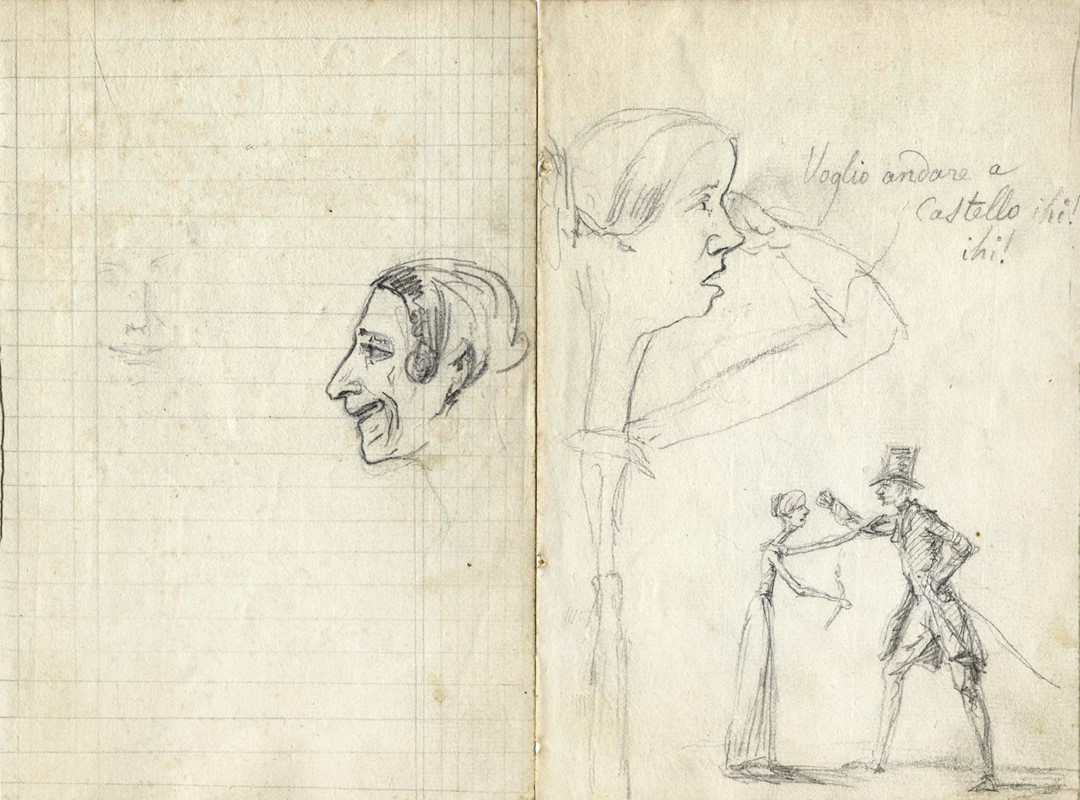 Voglio andare a
Castello ihi!
ihi!